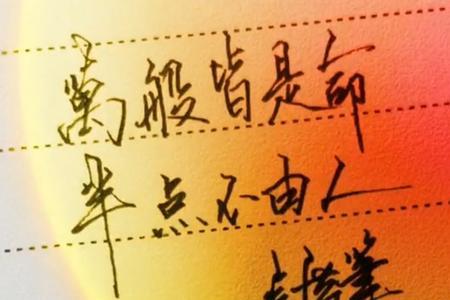 萬般皆是命
半点不由人